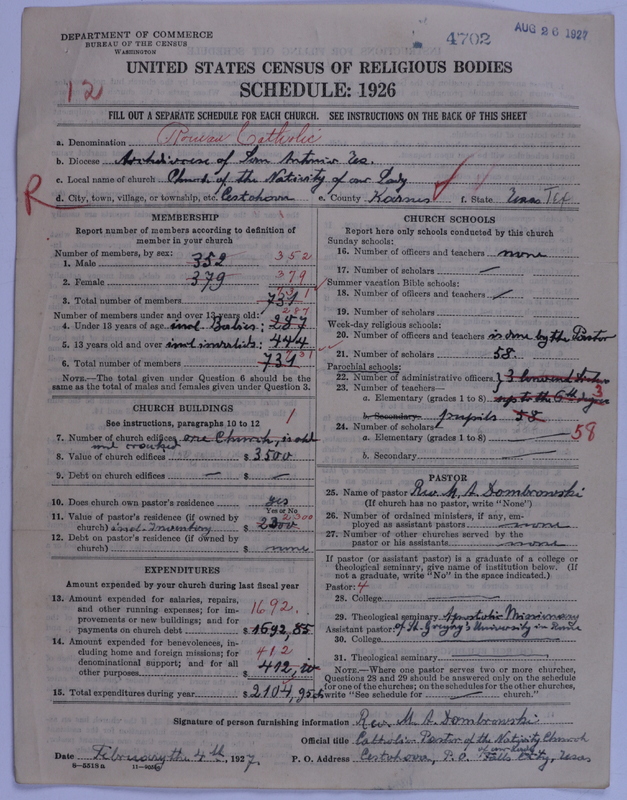 DEPARTMENT OF COMMERCE
BUREAU OF THE CENSUS
WASHINGTON
4702
AUG 26 1927
UNITED STATES CENSUS OF RELIGIOUS BODIES
SCHEDULE: 1926
12
FILL OUT A SEPARATE SCHEDULE FOR EACH CHURCH. SEE INSTRUCTIONS ON THE BACK OF THIS SHEET
a. Denomination Roman Catholic
b. Diocese Archdiocese of San Antonio Tex.
c. Local name of church Church of the Nativity of our Lady
R
d. City, town, village, or township, etc. Cestohowa e. County Karnes f. State Texas TEX
MEMBERSHIP
Report number of members according to definition of member in your church
Number of members, by sex:
1. Male 352 352
2. Female 379 379
3. Total number of members 731 731
Number of members under and over 13 years old:
4. Under 13 years of age incl. Babies: 287 287
5. 13 years old and over incl invalids: 444
6. Total number of members 731 731
NOTE.—The total given under Question 6 should be the same as the total of males and females given under Question 3.
CHURCH BUILDINGS
See instructions, paragraphs 10 to 12
1
7. Number of church edifices one Church, is old
and cracked
8. Value of church edifices $ 3500
9. Debt on church edifices — $ —
10. Does church own pastor's residence yes
Yes or No
11. Value of pastor's residence (if owned by church) incl. Inventory $ 2300 2300
12. Debt on pastor's residence (if owned by church) $ none
EXPENDITURES
Amount expended by your church during last fiscal year
13. Amount expended for salaries, repairs, and other running expenses; for improvements or new buildings; and for payments on church debt $ 1692,85 1692.
14. Amount expended for benevolences, including home and foreign missions; for denominational support; and for all other purposes $ 412,10 412
15. Total expenditures during year $ 2104,95
CHURCH SCHOOLS
Report here only schools conducted by this church
Sunday schools:
16. Number of officers and teachers none
17. Number of scholars —
Summer vacation Bible schools:
18. Number of officers and teachers —
19. Number of scholars
Week-day religious schools:
20. Number of officers and teachers is done by the Pastor
21. Number of scholars 58.
Parochial schools:
22. Number of administrative officers
23. Number of teachers—
a. Elementary (grades 1 to 8) up to the 6th 3
b. Secondary pupils 58
24. Number of scholars—
a. Elementary (grades 1 to 8) 58
b. Secondary
PASTOR
25. Name of pastor Rev. M. A. Dombrowski
(If church has no pastor, write "None")
26. Number of ordained ministers, if any, employed as assistant pastors none
27. Number of other churches served by the pastor or his assistants none
If pastor (or assistant pastor) is a graduate of a college or theological seminary, give name of institution below. (If not a graduate, write "No" in the space indicated.)
Pastor: 4
28. College
29. Theological seminary Apostolic Missionary
Assistant pastor: of St. Gregory's University in Rome
30. College
31. Theological seminary
NOTE.—Where one pastor serves two or more churches, Questions 28 and 29 should be answered only on the schedule for one of the churches; on the schedules for the other churches, write "See schedule for — church."
Signature of person furnishing information Rev. M. A. Dombrowski
Official title Catholic Pastor of the Nativity Church
of our Lady
Date February the 4th, 1927. P. O. Address Cestohowa, P.O. Falls City, Texas
8—5518a 11—9059